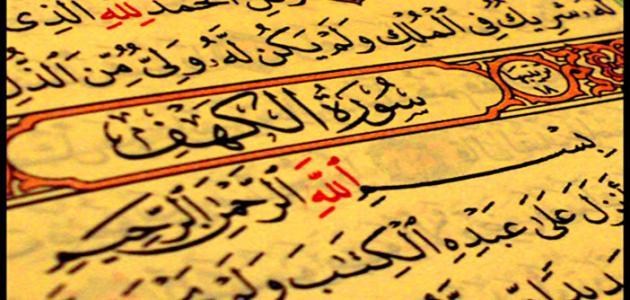 ٱلْحَمْدُ لِلَّهِ ٱلَّذِى
لَّهُۥ شَرِيكٌ فِى ٱلْمُلْكِ وَلَمْ يَكُن لَّهُۥ وَلِىٌّ مِّنَ ٱلذُّلِّ
ترتيبها ١٨
سُورَةُ الكَهْفِ
بِسْمِ ٱللَّهِ ٱلرَّحْمَٰنِ ٱلرَّحِيمِ
أَنزَلَ عَلَىٰ عَبْدِهِ ٱلْكِتَٰبَ وَلَمْ